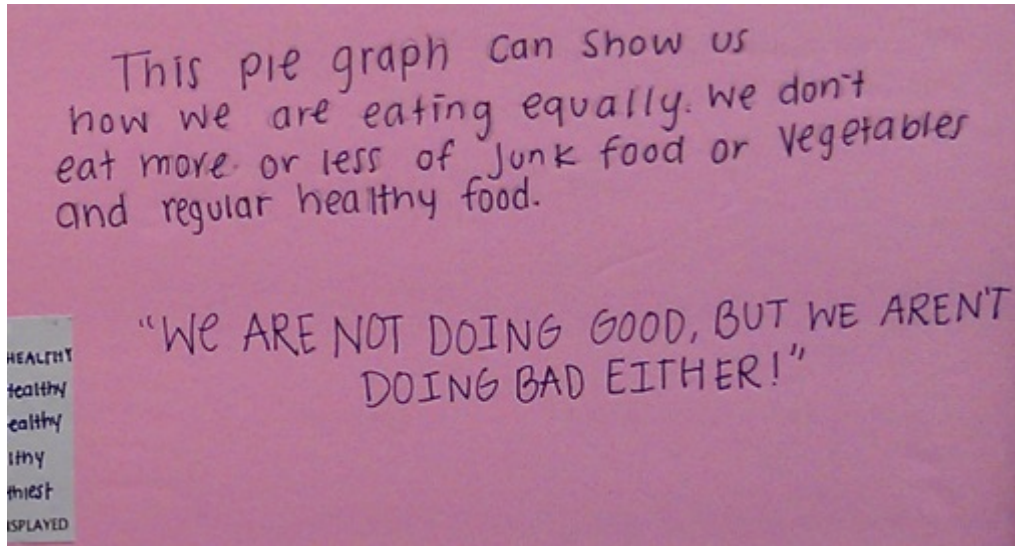 This pie graph can show us
how we are eating equally. We don't
eat more or less of Junk food or vegetables
and regular healthy food.
"We ARE NOT DOING GOOD, BUT WE AREN'T
DOING BAD EITHER!"
HEALTHY
Healthy
ealthy
lthy
thiest
ISPLAYED